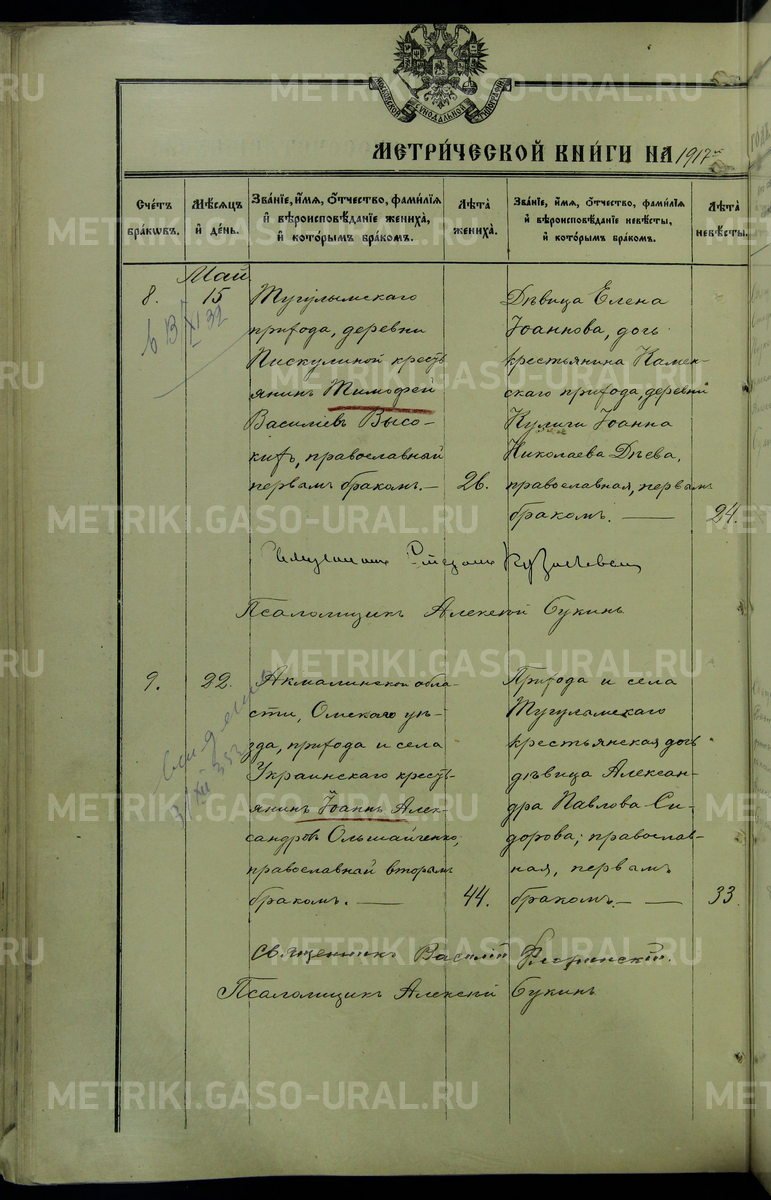 МЕТРИ́ЧЕСКОЙ КНИ́ГИ НА 1917
Счетъ бра́кωвъ.
Мѣ́сяцъ и҆ де́нь.
Зва́нїе, и҆́мя, ѻ҆́тчество, фамилїя и҆ вѣроисповѣданїе жениха̀, и҆ кото́рымъ бра́комъ.
Лѣ́та жениха̀.
Зва́нїе, и҆́мя, ѻ҆́тчество, фамилїя и҆ вѣроисповѣданїе невѣсты, и҆ кото́рымъ бра́комъ.
Лѣ́та невѣ́сты.
Май
8.
15
Тугулымскаго
прихода, деревни
Пискулиной кресть
янинъ Тимофей
Василіевъ Высо-
кихъ, православный
первымъ бракомъ.—
26.
Дѣвица Елена
Іоаннова, дочь
крестьянина Камен-
скаго прихода, деревни
Кулиги Іоанна
Николаева Дѣева,
православная, первымъ
бракомъ. —
24.
Псаломщикъ Алексѣй Букинъ
9.
22.
Акмолинской обла-
сти, Омскаго уѣ-
зда, прихода и села
Украинскаго кресть-
янинъ Іоаннъ Алек-
сандровъ Ольшайченко,
православный вторымъ
бракомъ. —
44.
Прихода и села
Тугулымскаго
крестьянская дочь
дѣвица Алексан-
дра Павлова Си-
дорова; православ-
ная, первымъ
бракомъ. —
33.
Священникъ Василій
Псаломщикъ Алексѣй Букинъ
METRIKI.GASO-URAL.RU